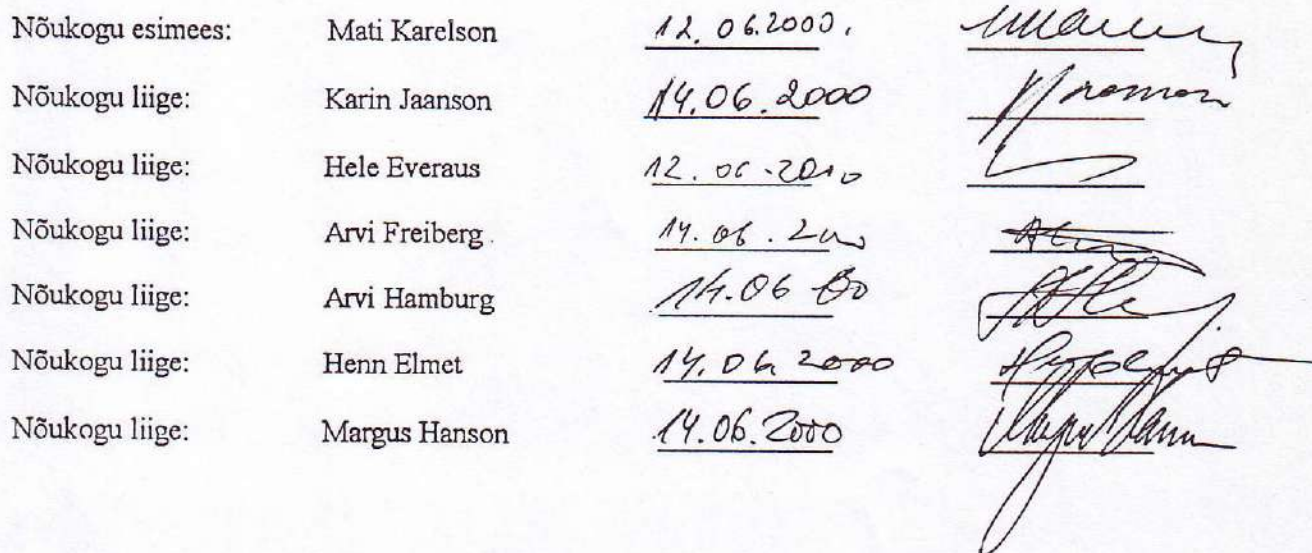 Nõukogu esimees: Mati Karelson 12.06.2000.
Nõukogu liige: Karin Jaanson 14.06.2000
Nõukogu liige: Hele Everaus 12.06.2000
Nõukogu liige: Arvi Freiberg 14.06.2000
Nõukogu liige: Arvi Hamburg 14.06 00
Nõukogu liige: Henn Elmet 14.06.2000
Nõukogu liige: Margus Hanson 14.06.2000